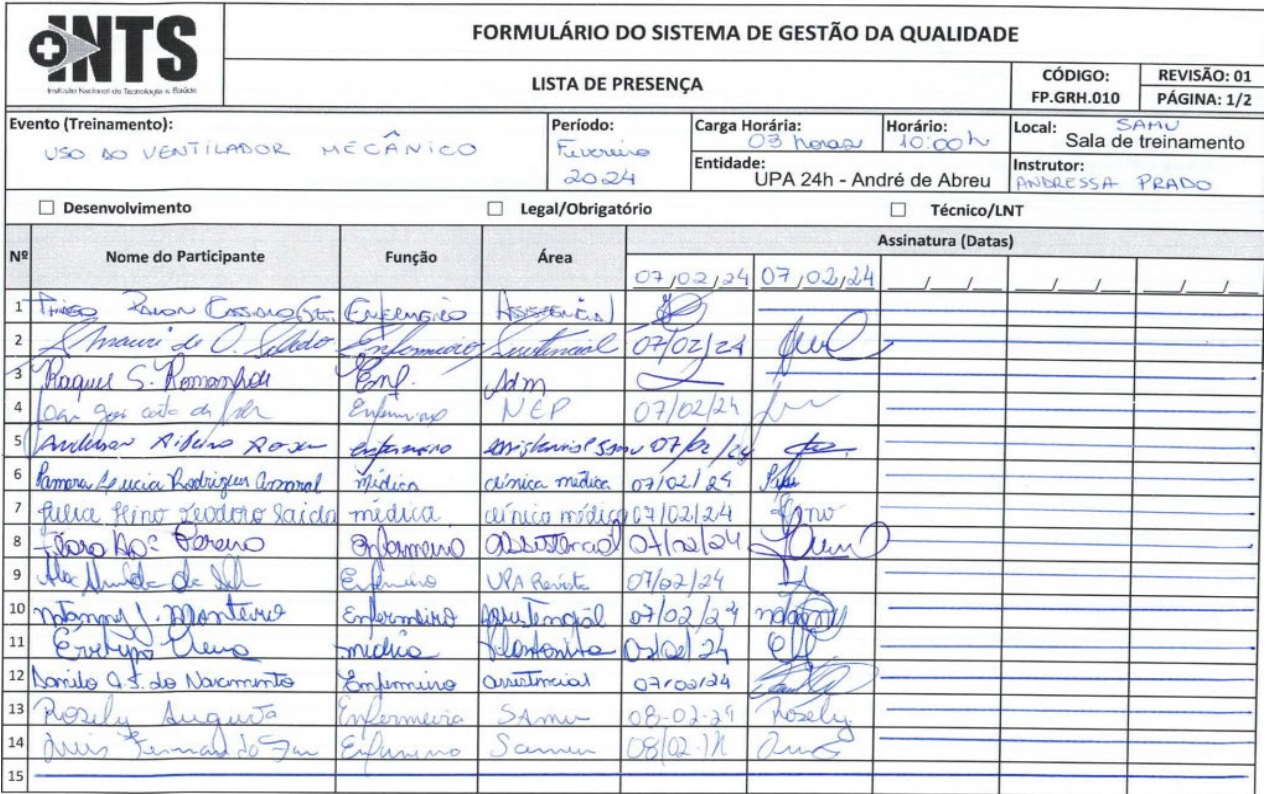 INTS
Instituto Nacional de Tecnologia e Saúde
FORMULÁRIO DO SISTEMA DE GESTÃO DA QUALIDADE
LISTA DE PRESENÇA
CÓDIGO: FP.GRH.010
REVISÃO: 01
PÁGINA: 1/2
Evento (Treinamento): USO DO VENTILADOR MECÂNICO
Período: Fevereiro 2024
Carga Horária: 03 horas
Horário: 10:00 h
Local: SAMU Sala de treinamento
Entidade: UPA 24h - André de Abreu
Instrutor: ANDRESSA PRADO
☐ Desenvolvimento ☐ Legal/Obrigatório ☐ Técnico/LNT
Nº Nome do Participante Função Área Assinatura (Datas)
07/02/24 07/02/24 __/__/__ __/__/__ __/__/__
1 Enfermeiro Assistencial
2 de O. Enfermeiro 07/02/24
3 Raquel S. Enf. Adm
4 NEP 07/02/24
5 Anderson Ribeiro enfermeiro assistencial Samu 07/02/24
6 Lucia Rodrigues Amaral médica clínica médica 07/02/24
7 Teodoro médica clínica médica 07/02/24
8 Enfermeiro assistencial 07/02/24
9 Alex Almeida da Enfermeiro UPA 07/02/24
10 J. Monteiro Enfermeiro Assistencial 07/02/24
11 médico Plantonista
12 Danilo do Nascimento Enfermeiro assistencial 07/02/24
13 Rosely Augusta Enfermeira SAMU 08-02-24 Rosely
14 Luis Fernando Enfermeiro Samu
15